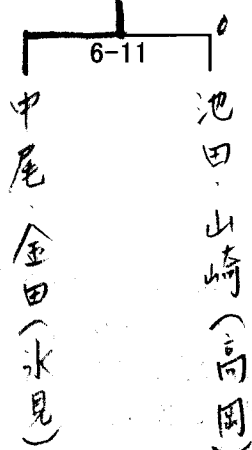 0
6-11
池田・山崎(高岡)
中尾・金田(氷見)